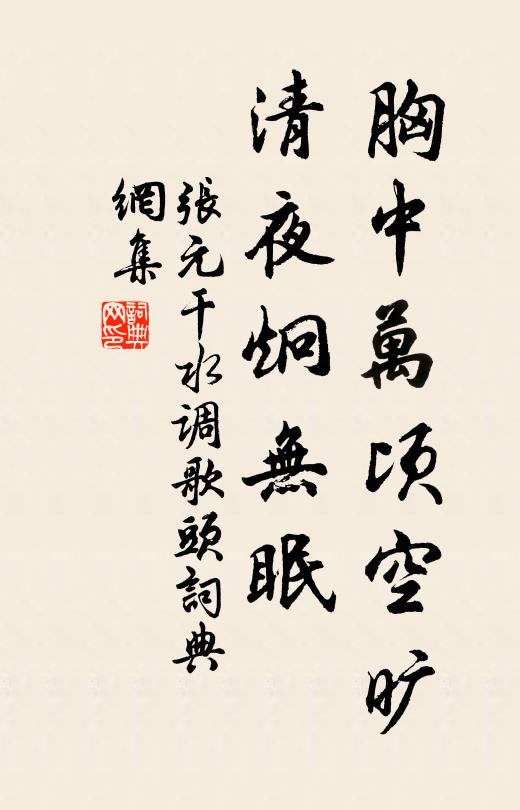 胸中萬頃空旷
清夜炯無眠
張元干水调歌頭詞典
網集
詞典
网印